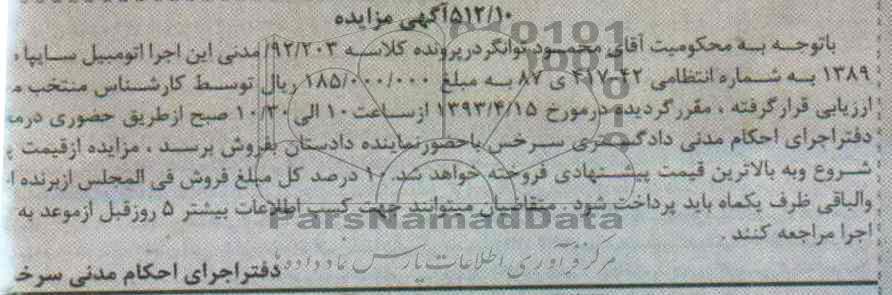 ۵۱۲/۱۰آگهی مزایده
باتوجه به محکومیت آقای محمود توانگر درپرونده کلاسه ۹۲/۲۰۳ مدنی این اجرا اتومبیل سایپا
۱۳۸۹ به شماره انتظامی ۴۲-۴۱۷ ی ۸۷ به مبلغ ۱۸۵/۰۰۰/۰۰۰ ریال توسط کارشناس منتخب
ارزیابی قرارگرفته ، مقرر گردیده درمورخ ۱۳۹۳/۴/۱۵ ازساعت ۱۰ الی ۱۰/۳۰ صبح ازطریق حضوری
دفتراجرای احکام مدنی دادگستری سرخس باحضورنماینده دادستان بفروش برسد ، مزایده ازقیمت
شروع وبه بالاترین قیمت پیشنهادی فروخته خواهد شد. ۱۰ درصد کل مبلغ فروش فی المجلس ازبرنده
والباقی ظرف یکماه باید پرداخت شود . متقاضیان میتوانند جهت کسب اطلاعات بیشتر ۵ روزقبل ازموعد به
اجرا مراجعه کنند .
دفتراجرای احکام مدنی
ParsNamadData
مرکز فرآوری اطلاعات پارس نماد داده ها